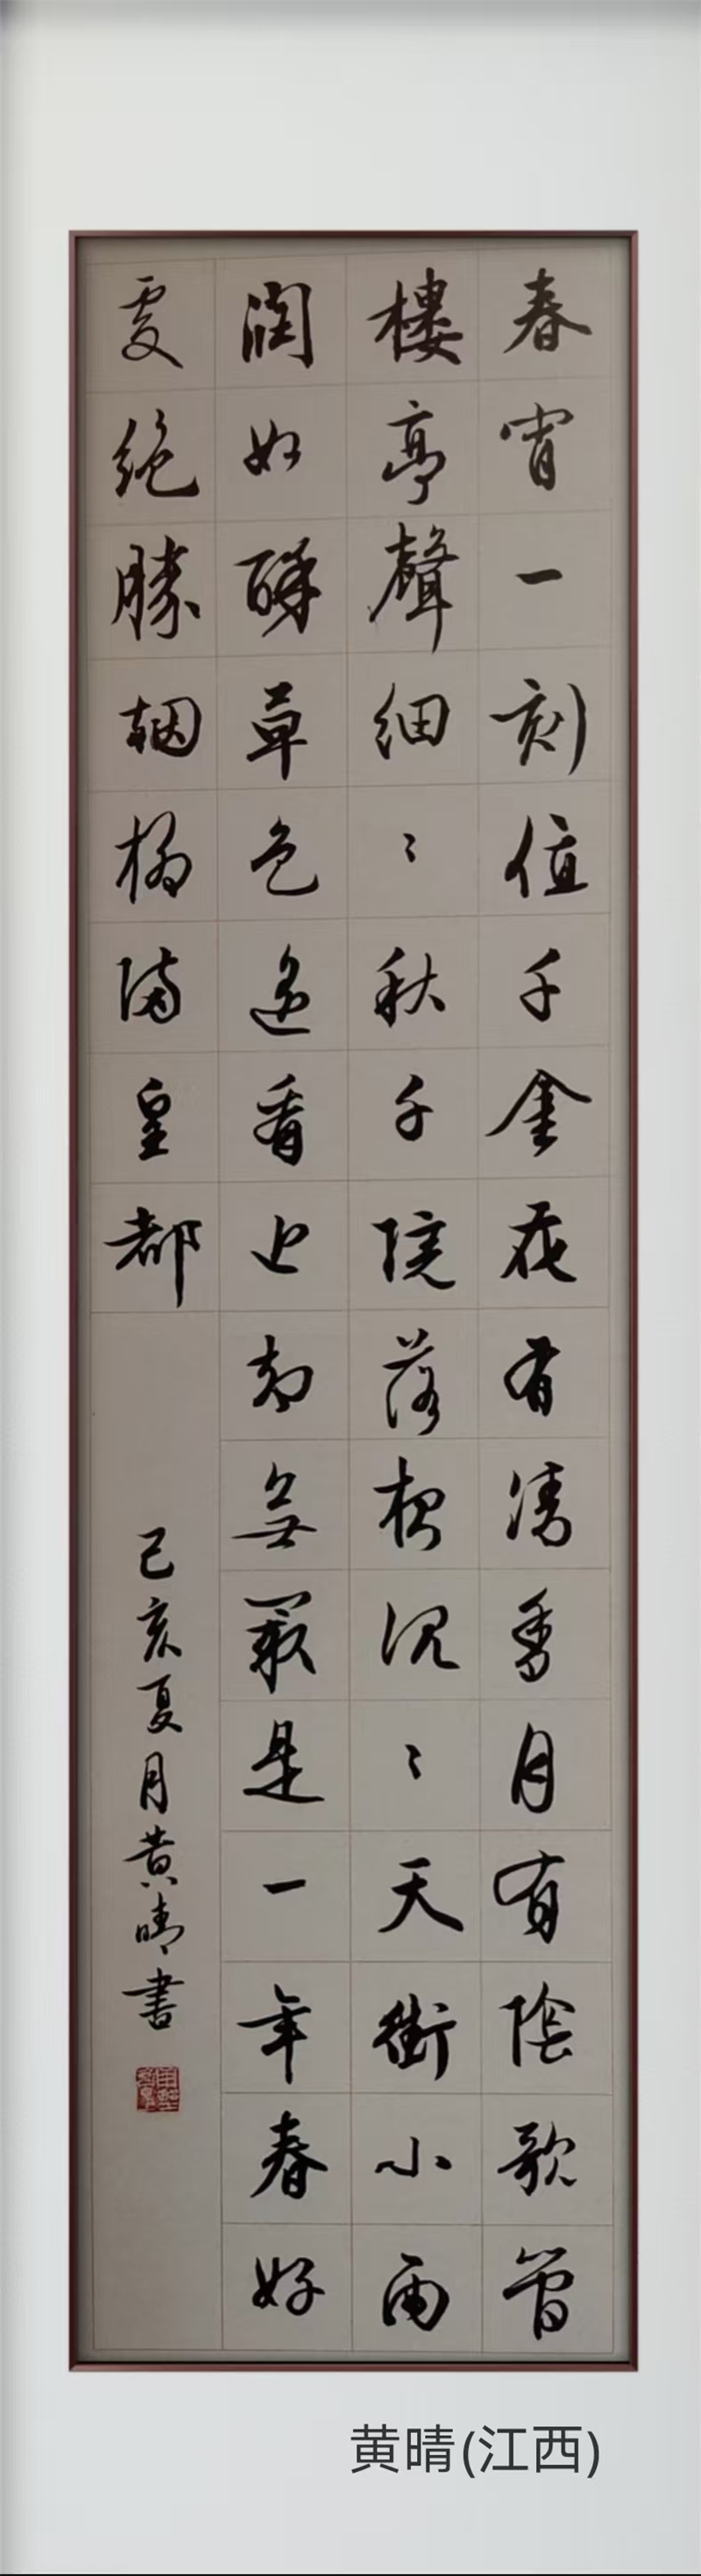 春宵一刻值千金花有清香月有陰歌管
樓亭聲細〻秋千院落夜沉〻天街小雨
潤如酥草色遙看近却無最是一年春好
處絕勝烟柳滿皇都
己亥夏月黃晴書
黄晴(江西)